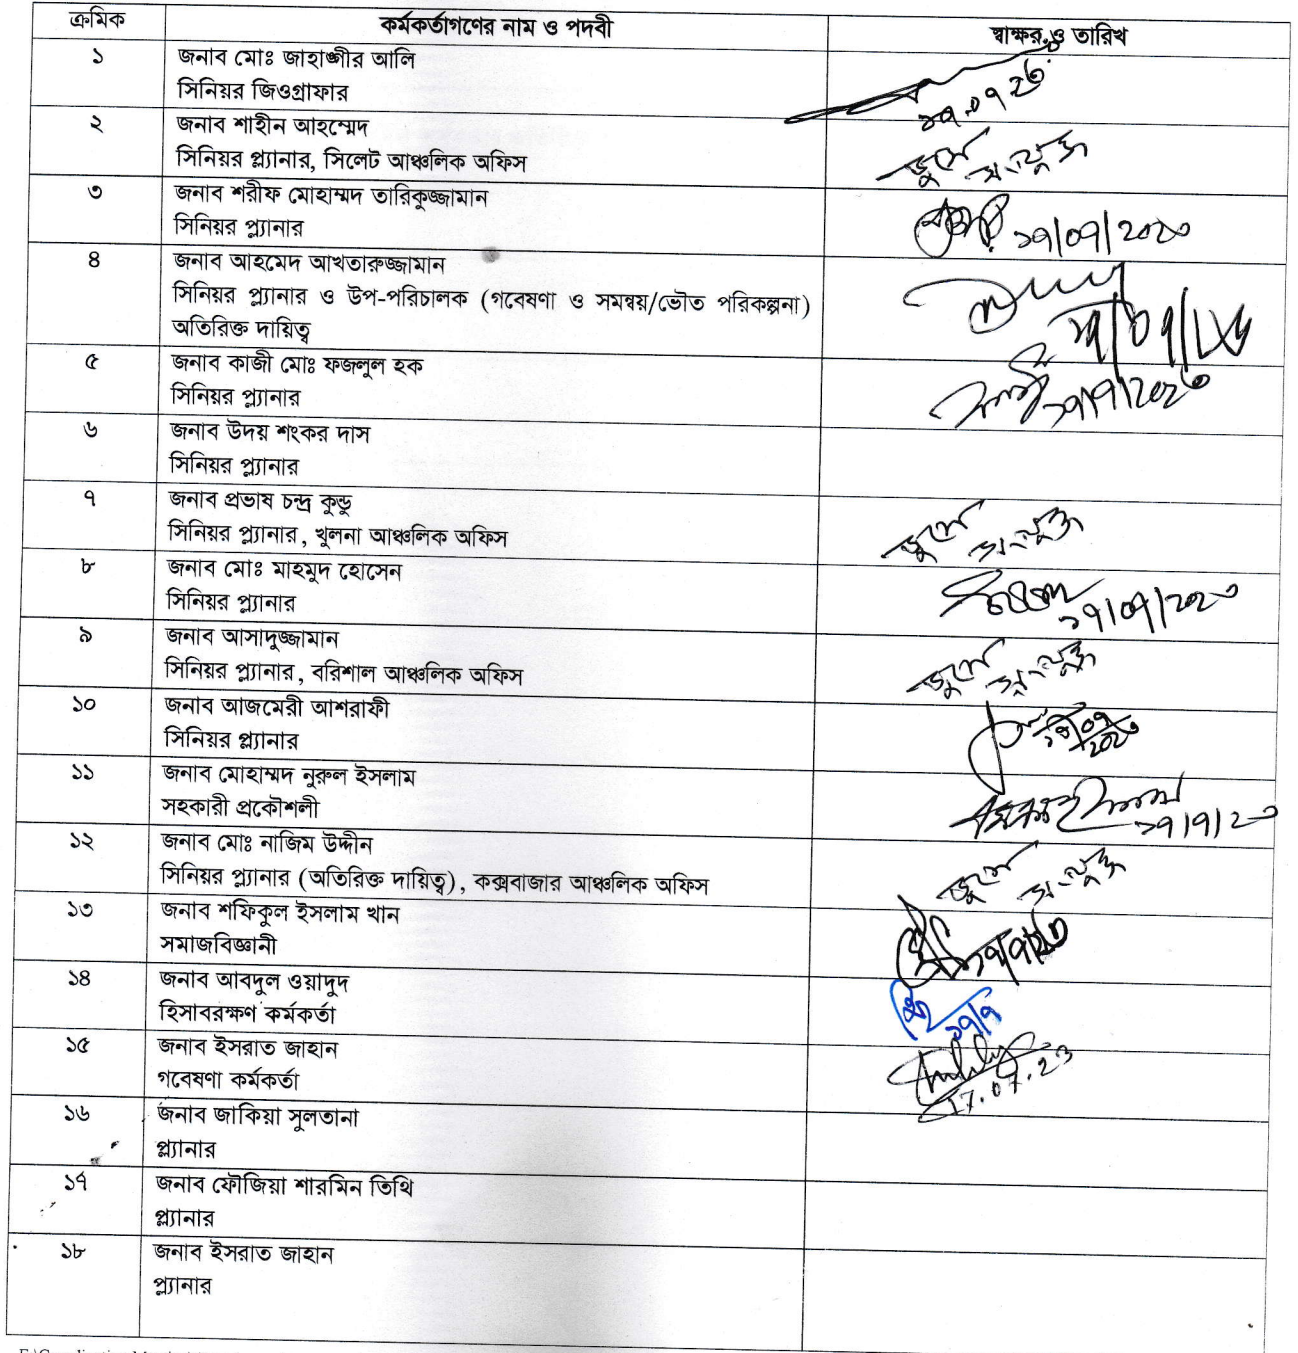 ক্রমিক কর্মকর্তাগণের নাম ও পদবী স্বাক্ষর ও তারিখ
১ জনাব মোঃ জাহাঙ্গীর আলি
সিনিয়র জিওগ্রাফার
১৭.০৭.২৩
২ জনাব শাহীন আহম্মেদ
সিনিয়র প্ল্যানার, সিলেট আঞ্চলিক অফিস
জুমে সংযুক্ত
৩ জনাব শরীফ মোহাম্মদ তারিকুজ্জামান
সিনিয়র প্ল্যানার
১৭/০৭/২০২৩
৪ জনাব আহমেদ আখতারুজ্জামান
সিনিয়র প্ল্যানার ও উপ-পরিচালক (গবেষণা ও সমন্বয়/ভৌত পরিকল্পনা)
অতিরিক্ত দায়িত্ব
১৭/০৭/২৩
৫ জনাব কাজী মোঃ ফজলুল হক
সিনিয়র প্ল্যানার
১৭/৭/২০২৩
৬ জনাব উদয় শংকর দাস
সিনিয়র প্ল্যানার
৭ জনাব প্রভাষ চন্দ্র কুন্ডু
সিনিয়র প্ল্যানার, খুলনা আঞ্চলিক অফিস
জুমে সংযুক্ত
৮ জনাব মোঃ মাহমুদ হোসেন
সিনিয়র প্ল্যানার
১৭/০৭/২০২৩
৯ জনাব আসাদুজ্জামান
সিনিয়র প্ল্যানার, বরিশাল আঞ্চলিক অফিস
জুমে সংযুক্ত
১০ জনাব আজমেরী আশরাফী
সিনিয়র প্ল্যানার
১৭/০৭
২০২৩
১১ জনাব মোহাম্মদ নুরুল ইসলাম
সহকারী প্রকৌশলী
১৭/৭/২৩
১২ জনাব মোঃ নাজিম উদ্দীন
সিনিয়র প্ল্যানার (অতিরিক্ত দায়িত্ব), কক্সবাজার আঞ্চলিক অফিস
জুমে সংযুক্ত
১৩ জনাব শফিকুল ইসলাম খান
সমাজবিজ্ঞানী
১৭/৭/২৩
১৪ জনাব আবদুল ওয়াদুদ
হিসাবরক্ষণ কর্মকর্তা
১৭/৭
১৫ জনাব ইসরাত জাহান
গবেষণা কর্মকর্তা
17.07.23
১৬ জনাব জাকিয়া সুলতানা
প্ল্যানার
১৭ জনাব ফৌজিয়া শারমিন তিথি
প্ল্যানার
১৮ জনাব ইসরাত জাহান
প্ল্যানার